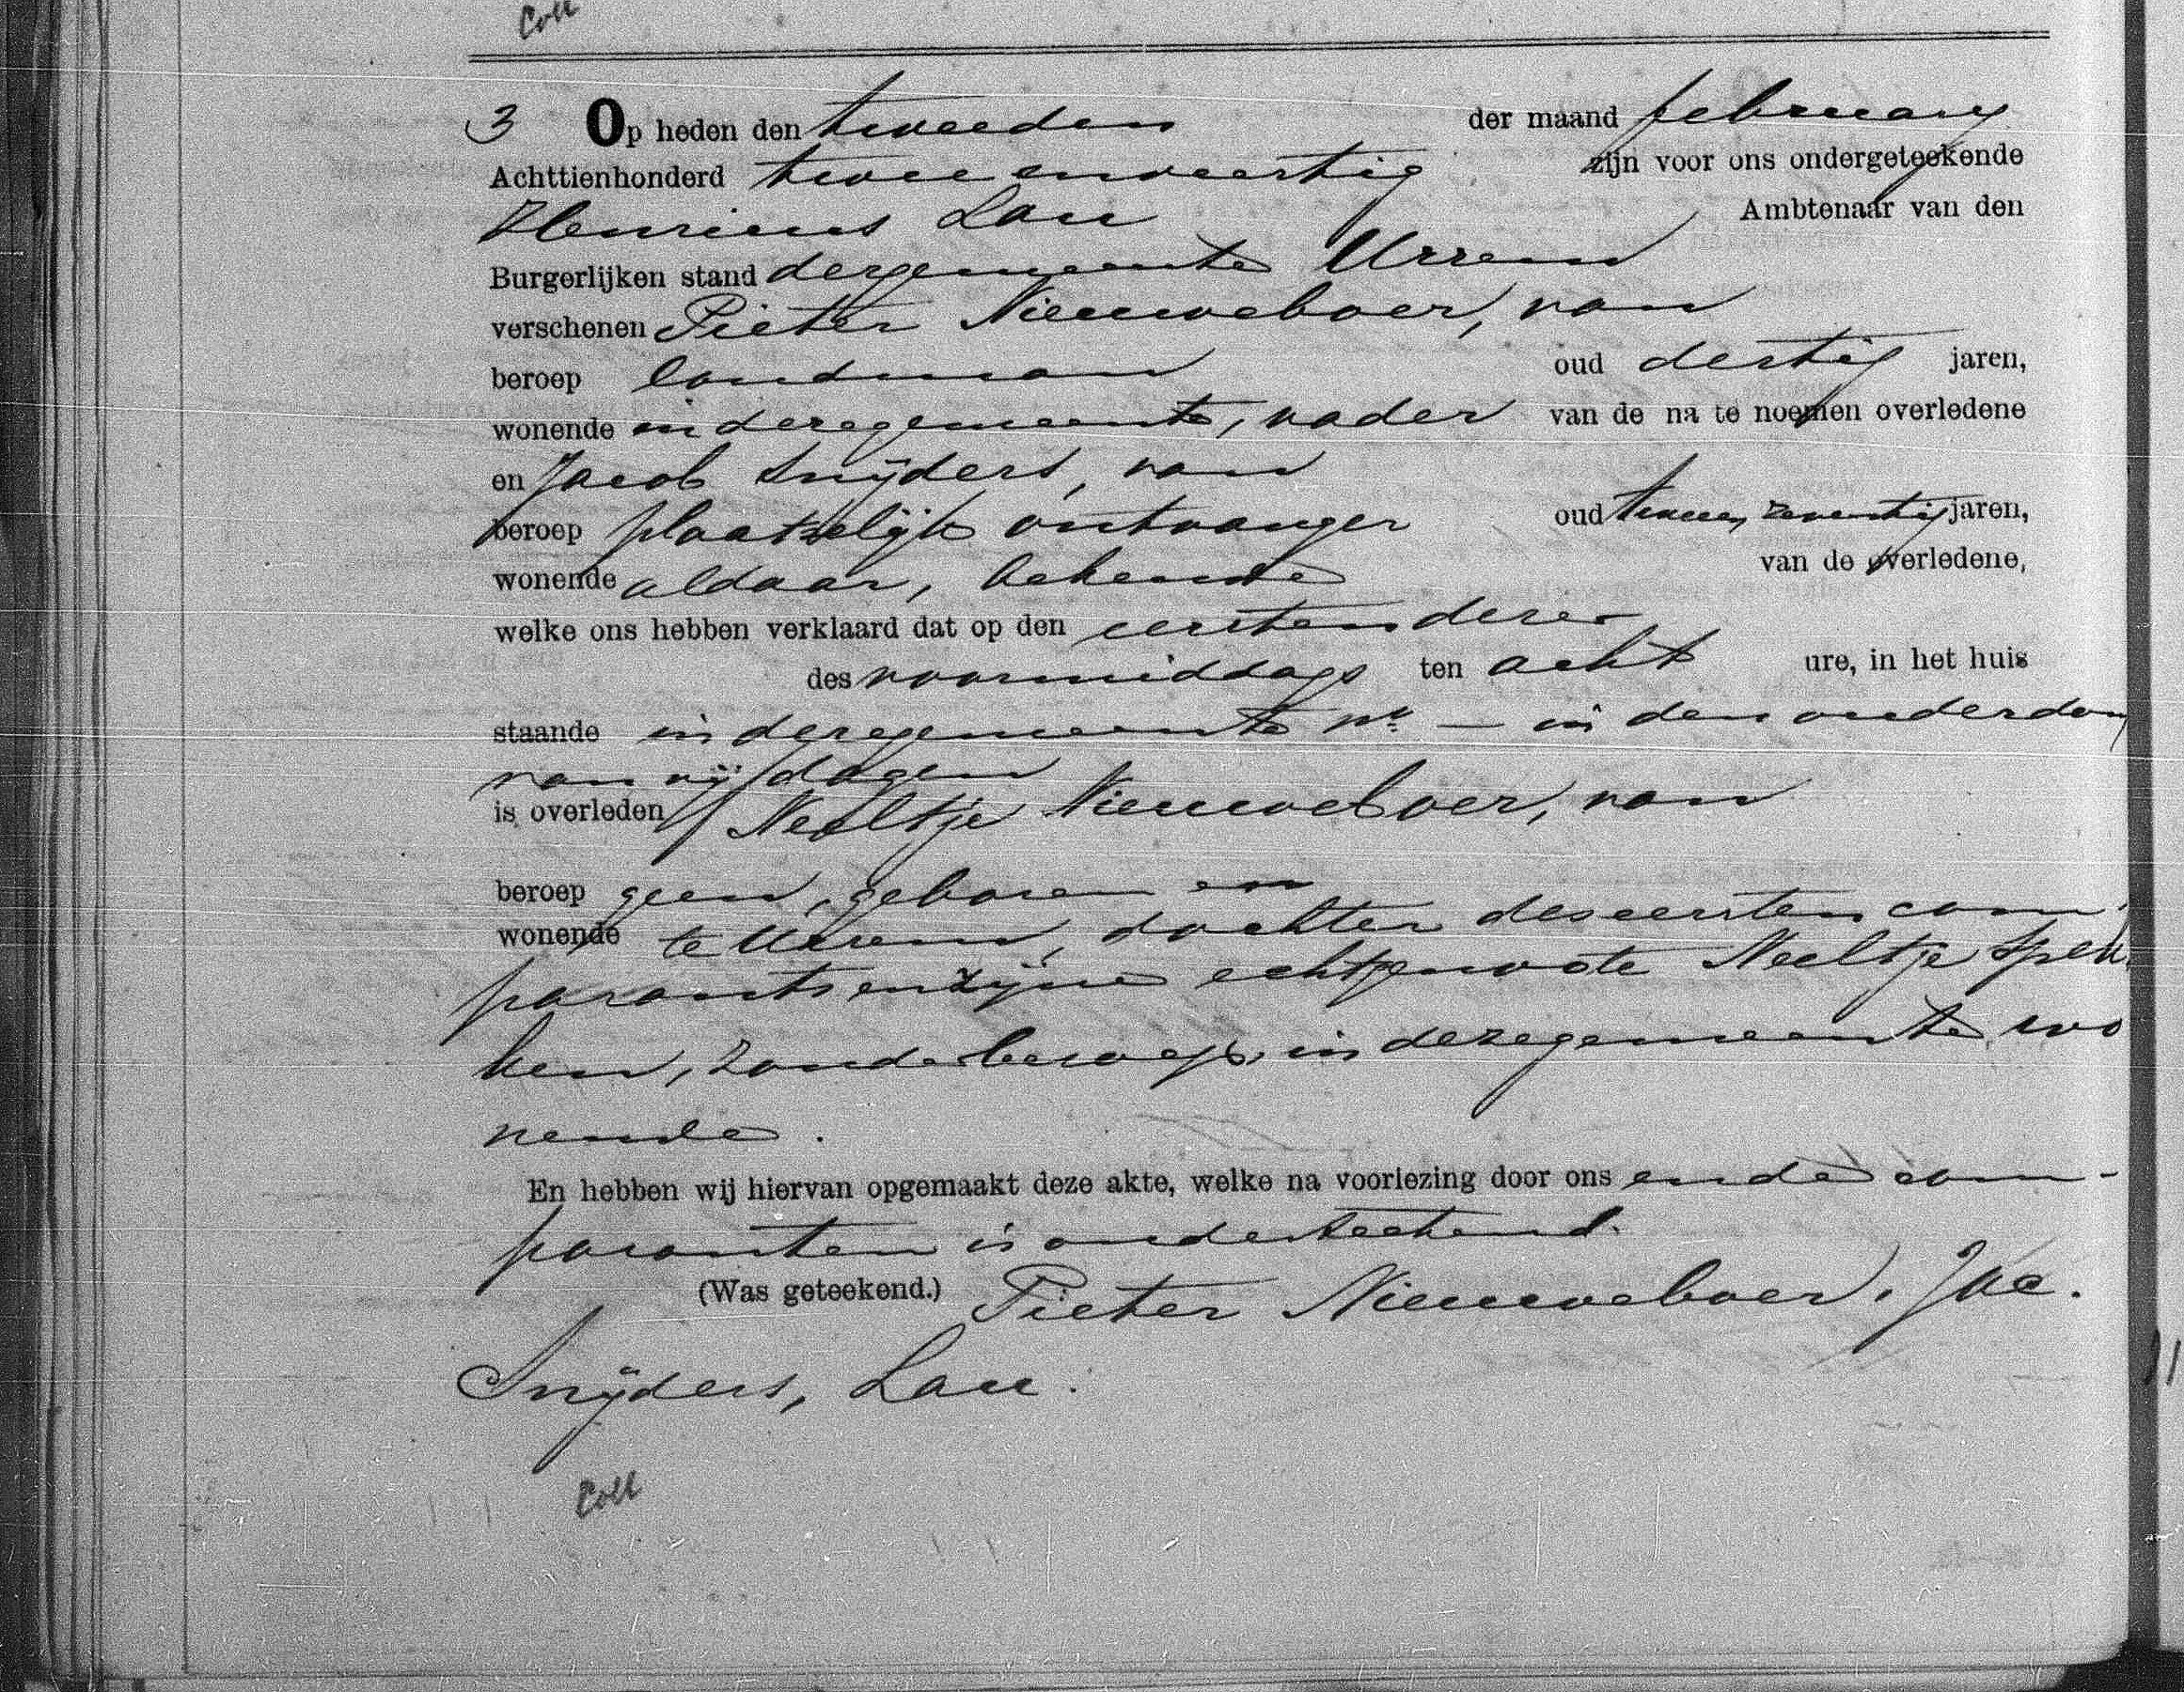 Coll
3 Op heden den tweeden der maand february
Achttienhonderd twee en veertig zijn voor ons ondergeteekende
Henricus Lau Ambtenaar van den
Burgerlijken stand der gemeente Ursem
verschenen Pieter Nieuweboer, van
beroep landman oud dertig jaren,
wonende in deze gemeente, vader van de na te noemen overledene
en Jacob Snijders, van
beroep plaatselijk ontvanger oud twee en zeventig jaren,
wonende aldaar, bekende van de overledene,
welke ons hebben verklaard dat op den eersten dezer
des voormiddags ten acht ure, in het huis
staande in deze gemeente No. — in den ouderdom
van vijf dagen
is overleden Neeltje Nieuweboer, van
beroep geen, geboren en
wonende te Ursem, dochter des eersten com-
parants en zijne echtgenoote Neeltje Spek-
ken, zonder beroep, in deze gemeente wo
nende.
En hebben wij hiervan opgemaakt deze akte, welke na voorlezing door ons en de com-
paranten is onderteekend.
(Was geteekend.) Pieter Nieuweboer, Jac.
Snijders, Lau.
Coll